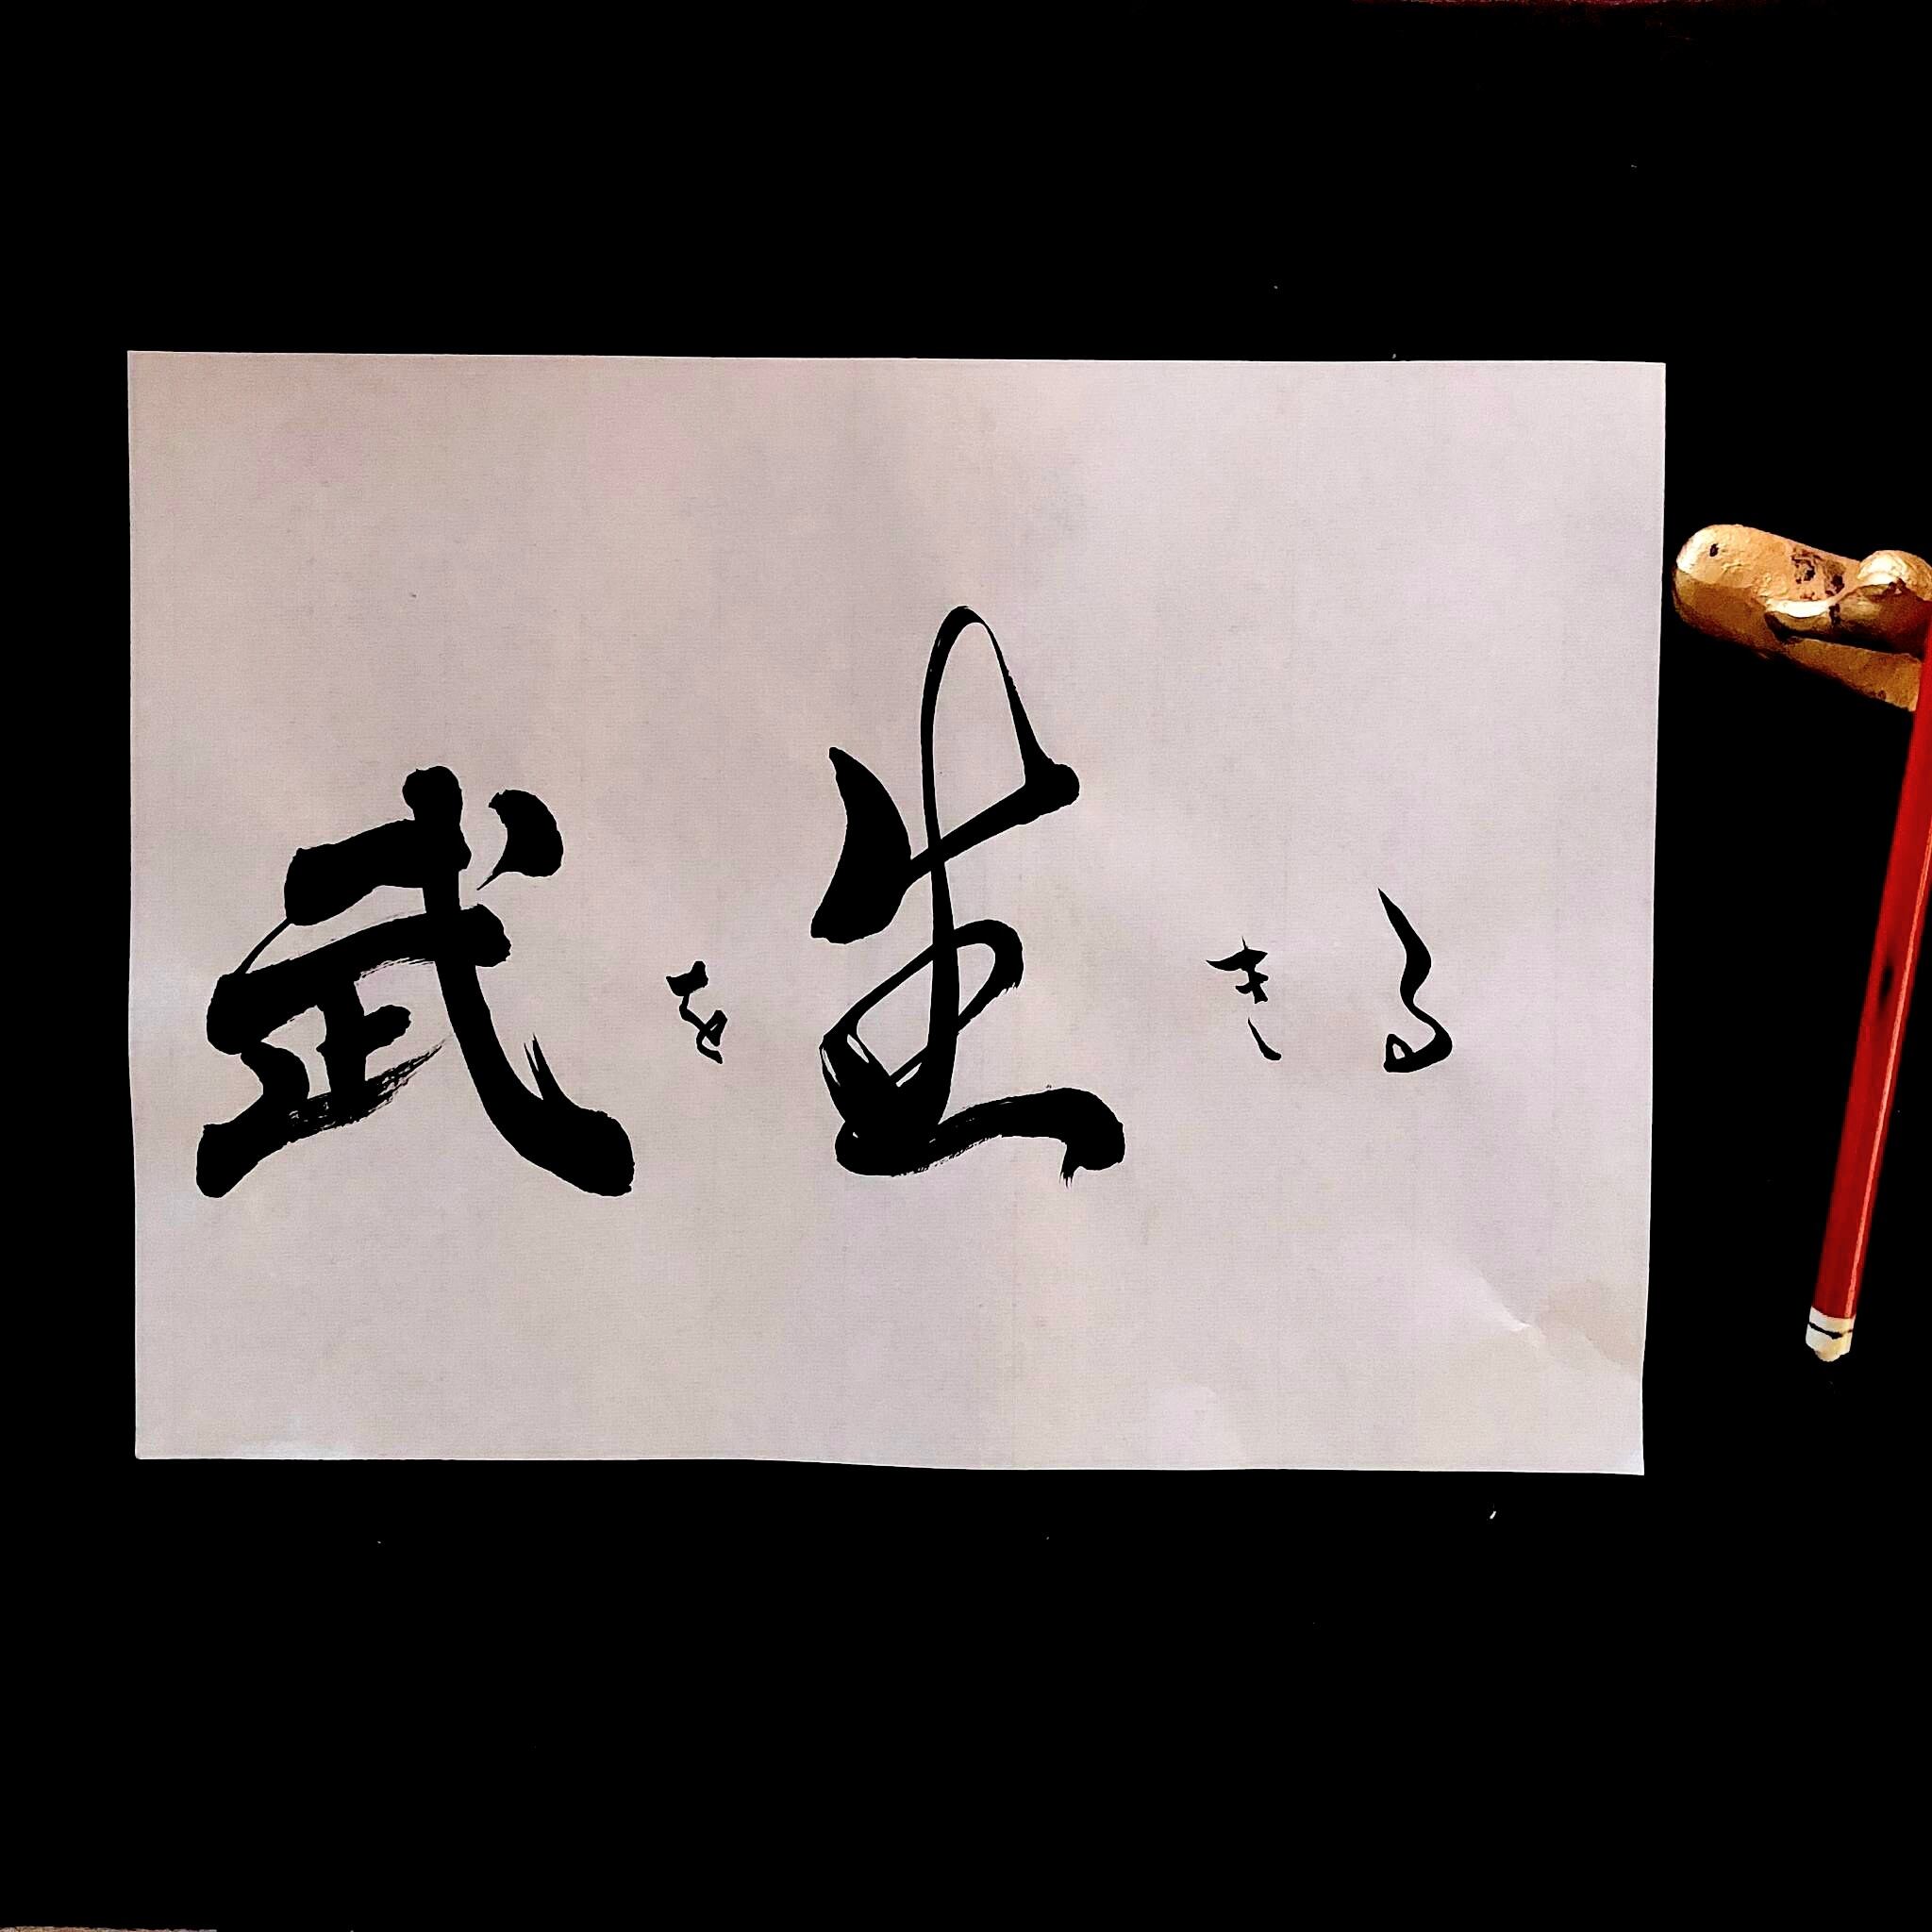 武を生きる